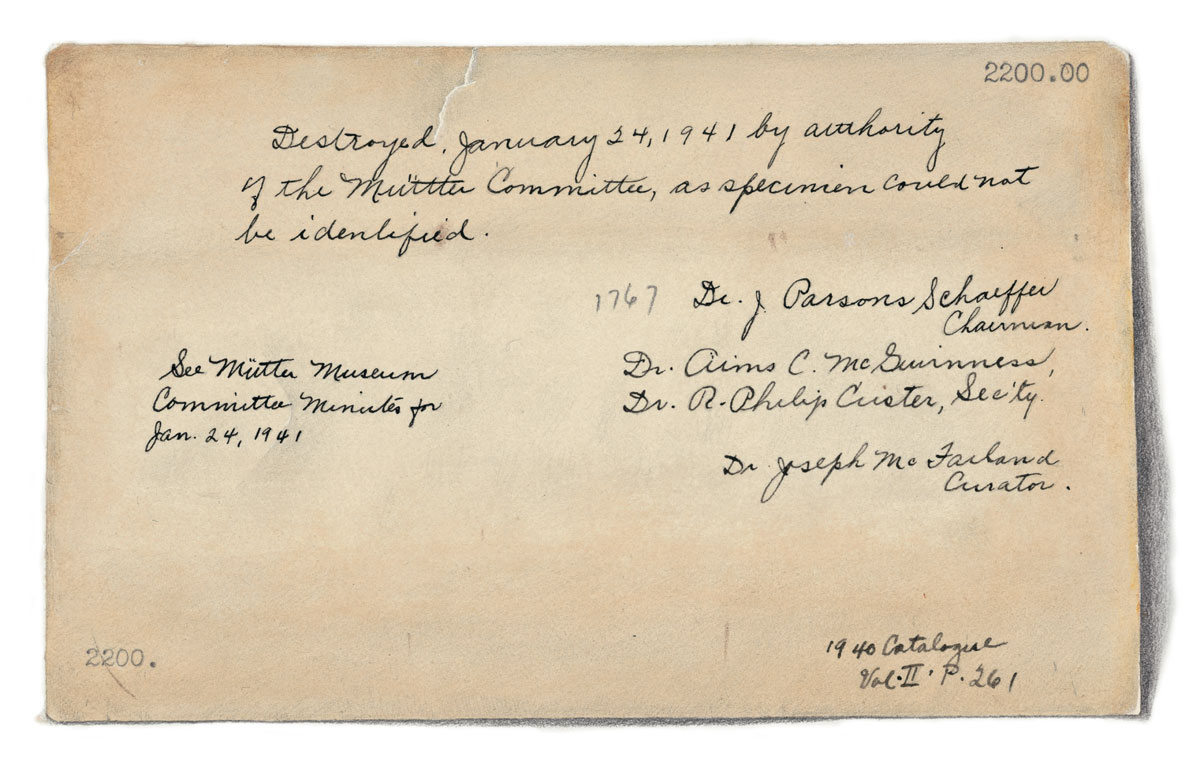 2200.00
Destroyed, January 24, 1941 by authority
of the Mütter Committee, as specimen could not
be identified.
1767 Dr. J Parsons Schaeffer
Chairman.
See Mütter Museum
Committee Minutes for
Jan. 24, 1941
Dr. Aims C. McGuinness,
Dr. R. Philip Custer, Sec'ty.
Dr Joseph McFarland
Curator.
2200.
1940 Catalogue
Vol. II. P. 261